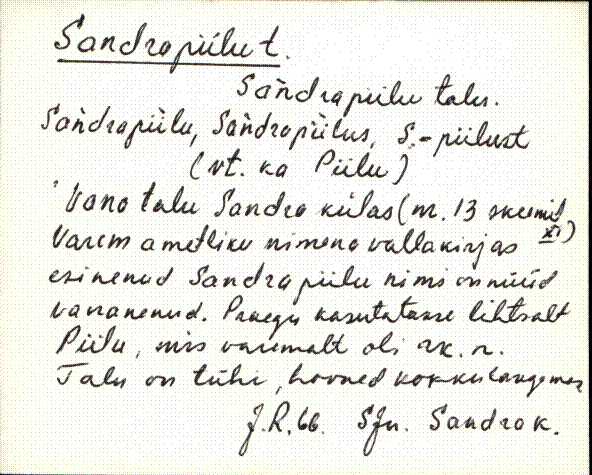 Sandrapiilu t.
Sańdrapiilu talu.
Sańdrapiilu, Sańdrapiilus, S.-piilust
(vt. ka Piilu)
Vana talu Sandra külas (nr. 13 skeemil
XI)
Varem ametliku nimena vallakirjas
esinenud Sandrapiilu nimi on nüüd
vananenud. Praegu kasutatakse lihtsalt
Piilu, mis varemalt oli rk. n.
Talu on tühi, hooned kokkulangemas
J.R. 66. SJn. Sandra k.